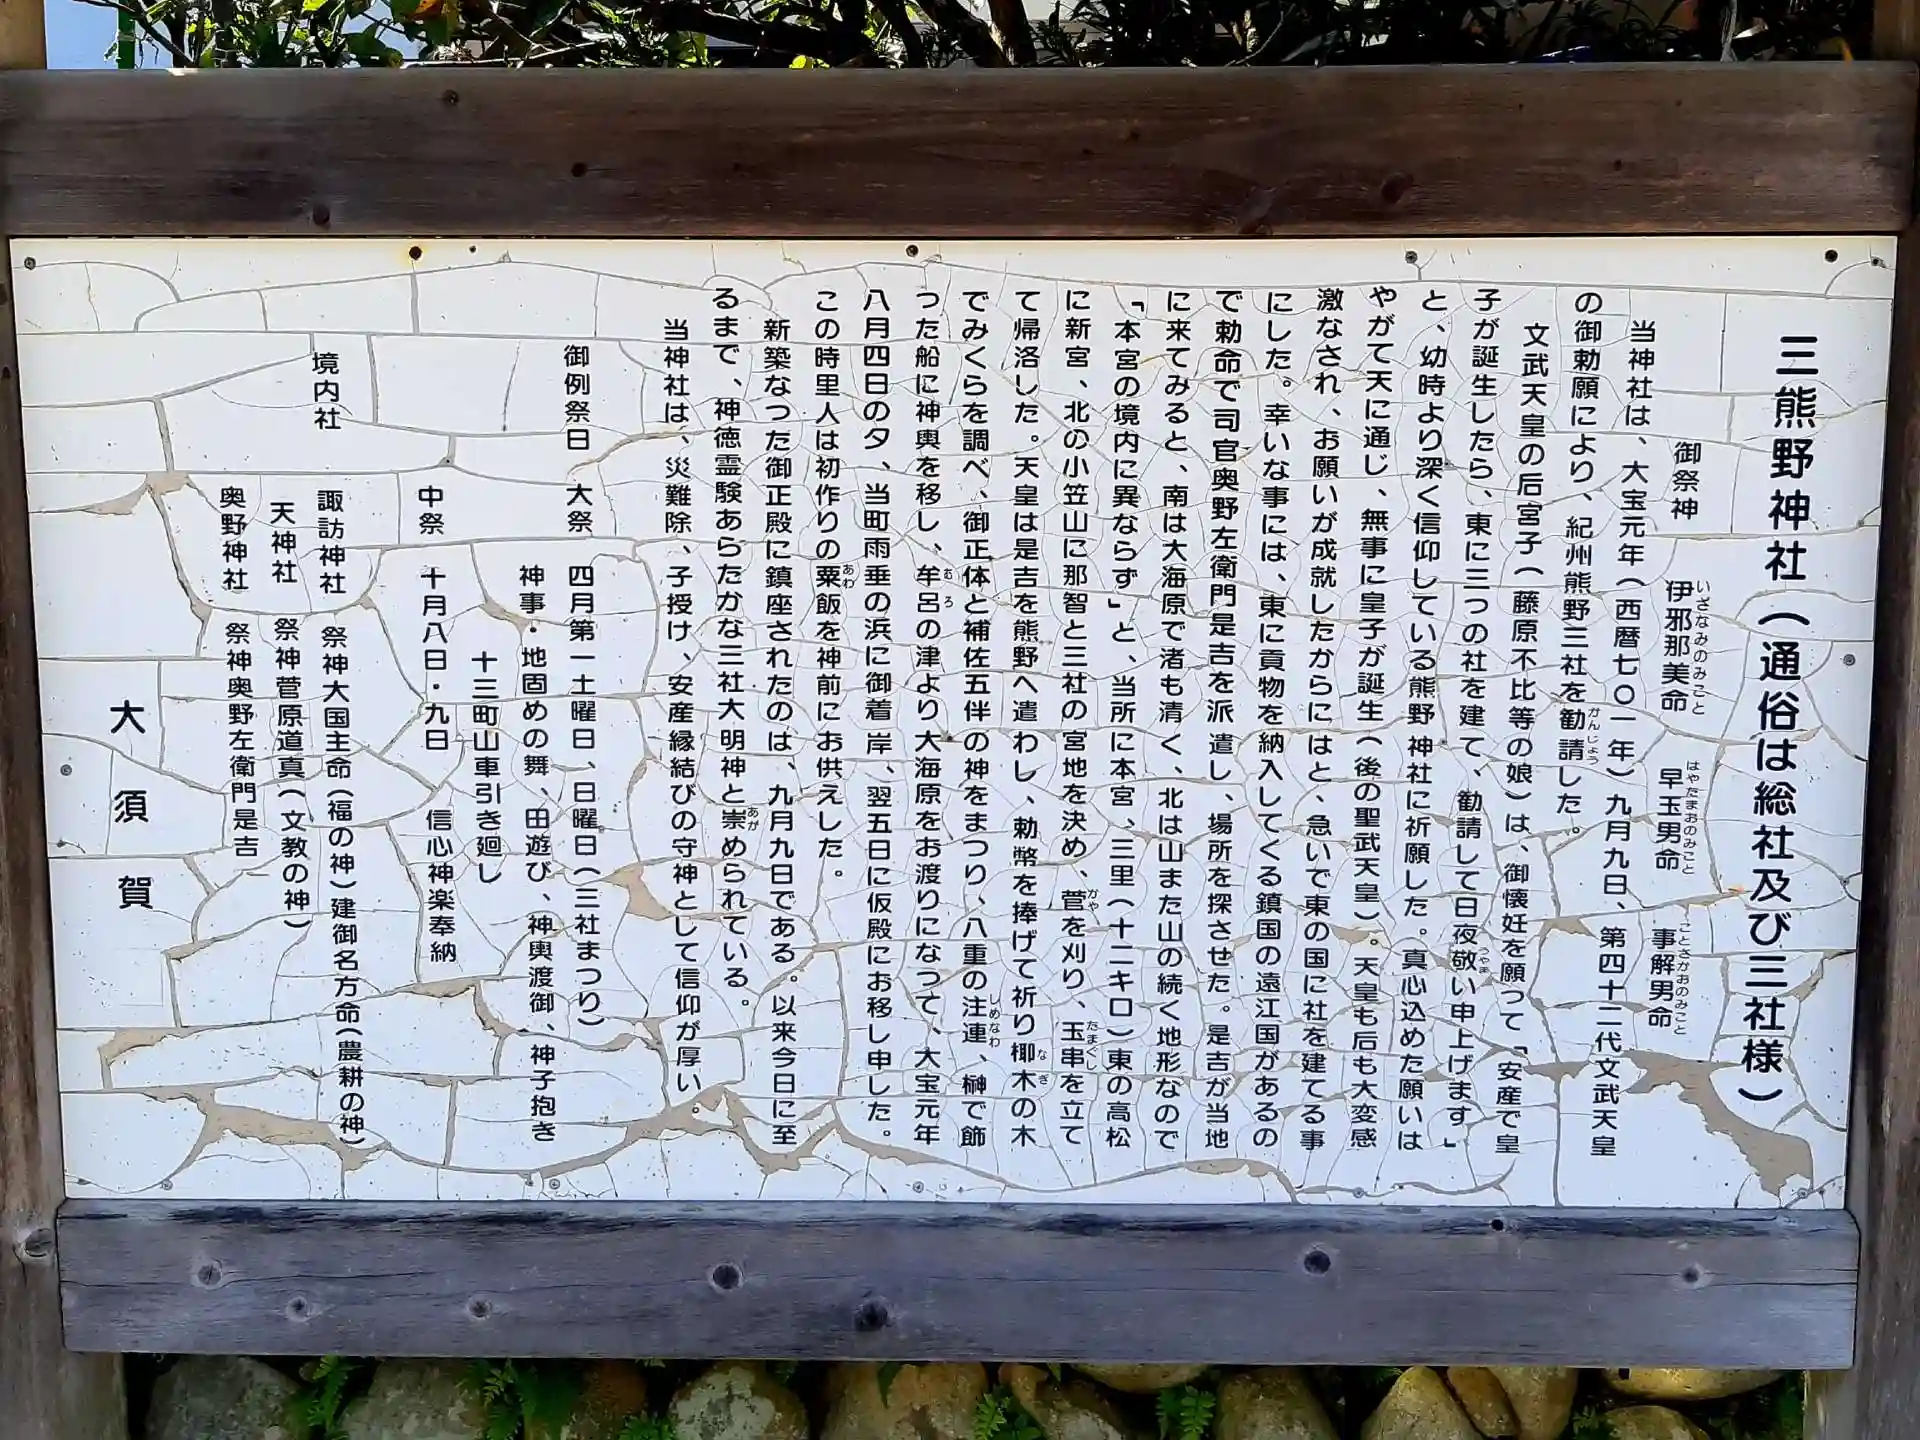 三熊野神社（通俗は総社及び三社様）
御祭神　伊邪那美命　早玉男命　事解男命
いざなみのみこと　はやたまおのみこと　ことさかおのみこと
当神社は、大宝元年（西暦七〇一年）九月九日、第四十二代文武天皇
の御勅願により、紀州熊野三社を勧請した。
かんじょう
文武天皇の后宮子（藤原不比等の娘）は、御懐妊を願って「安産で皇
子が誕生したら、東に三つの社を建て、勧請して日夜敬い申上げます」
うやま
と、幼時より深く信仰している熊野神社に祈願した。真心込めた願いは
やがて天に通じ、無事に皇子が誕生（後の聖武天皇）。天皇も后も大変感
激なされ、お願いが成就したからにはと、急いで東の国に社を建てる事
にした。幸いな事には、東に貢物を納入してくる鎮国の遠江国があるの
で勅命で司官奥野左衛門是吉を派遣し、場所を探させた。是吉が当地
に来てみると、南は大海原で渚も清く、北は山また山の続く地形なので
「本宮の境内に異ならず」と、当所に本宮、三里（十二キロ）東の高松
に新宮、北の小笠山に那智と三社の宮地を決め、菅を刈り、玉串を立て
がや　たまぐし
て帰洛した。天皇は是吉を熊野へ遣わし、勅幣を捧げて祈り梛木の木
なぎ
でみくらを調べ、御正体と補佐五伴の神をまつり、八重の注連、榊で飾
しめなわ
った船に神輿を移し、牟呂の津より大海原をお渡りになって、大宝元年
むろ
八月四日の夕、当町雨垂の浜に御着岸、翌五日に仮殿にお移し申した。
この時里人は初作りの粟飯を神前にお供えした。
あわ
新築なった御正殿に鎮座されたのは、九月九日である。以来今日に至
るまで、神徳霊験あらたかな三社大明神と崇められている。
あが
当神社は、災難除、子授け、安産縁結びの守神として信仰が厚い。
御例祭日　大祭　四月第一土曜日、日曜日（三社まつり）
神事・地固めの舞、田遊び、神輿渡御、神子抱き
十三町山車引き廻し
中祭　十月八日・九日　信心神楽奉納
境内社　諏訪神社　祭神大国主命（福の神）建御名方命（農耕の神）
天神社　祭神菅原道真（文教の神）
奥野神社　祭神奥野左衛門是吉
大須賀